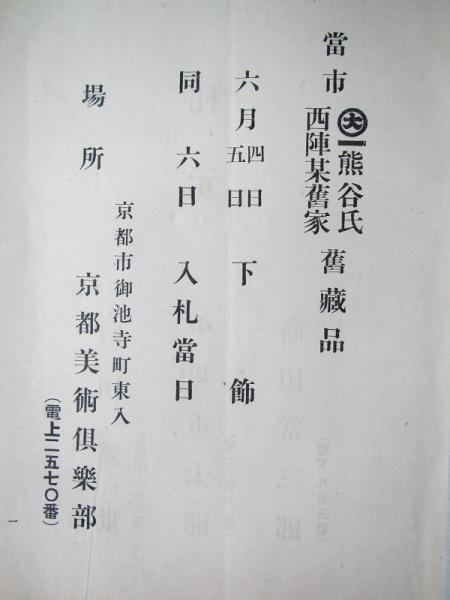 當市 ㊅一熊谷氏 舊藏品
西陣某舊家
六月四日 下飾
五日
同 六日 入札當日
場所
京都市御池寺町東入
京都美術俱樂部
(電上二五七〇番)
一